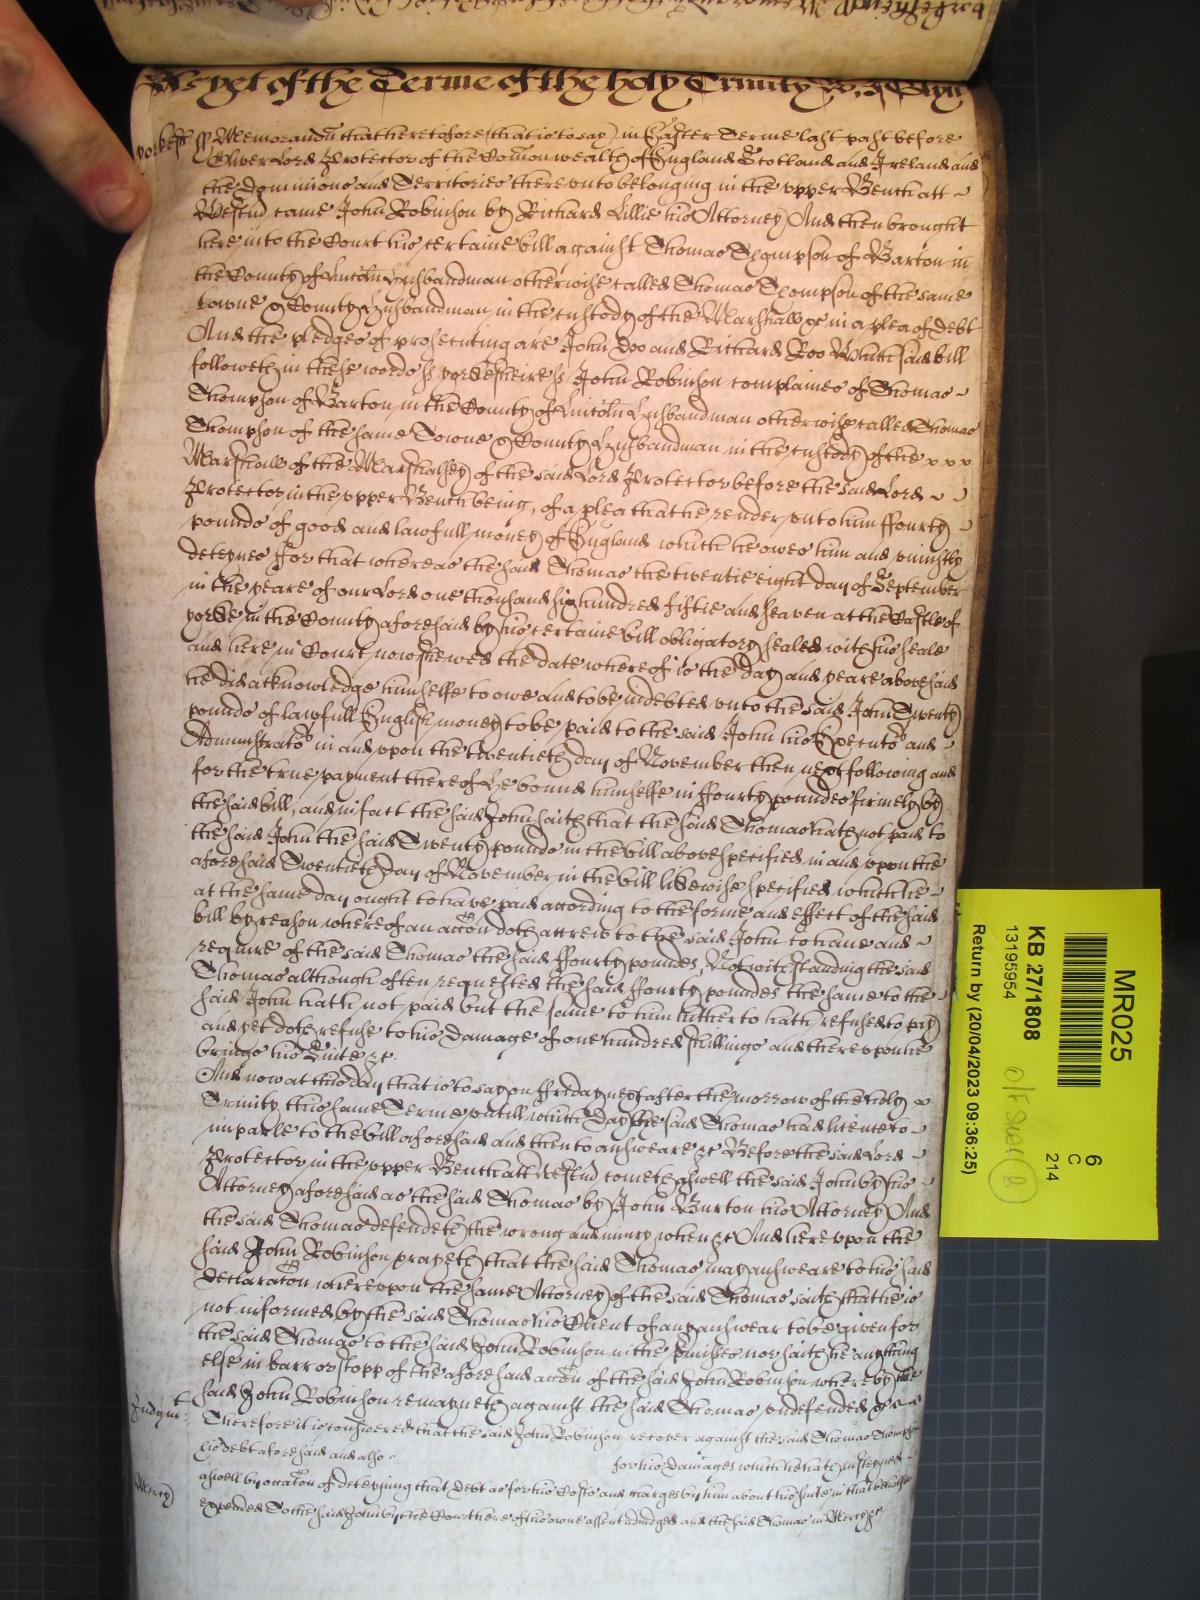 As yet of the Terme of the holy Trinity W: J Glyn
yorkess ss Memorand that heretofore (that is to say) in Easter Terme last past before
Oliver Lord Protector of the Comon wealth of England Scotland and Ireland and
the Dominions and Territories thereunto belonging in the upper Bench att
Westm came John Robinson by Richard Lillie his Attorney And then brought
here into the Court his certaine bill against Thomas Thompson of Barton in
the County of Lincoln husbandman otherwise called Thomas Thompson of the same
towne & County husbandman in the custody of the Marshall &c in a plea of debt
And the pledges of prosecuting are John Doo and Richard Roo Which said bill
followeth in these words ss yorkesheire ss John Robinson complaines of Thomas
Thompson of Barton in the County of Lincoln husbandman otherwise called Thomas
Thompson of the same Towne & County husbandman in the custody of the
Marshall of the Marshalsey of the said Lord Protector before the said Lord
Protector in the upper Bench being, of a plea that he render unto him ffourty
pounds of good and lawfull money of England which he owes him and uniustly
deteynes ffor that whereas the said Thomas the twentie eight day of September
in the yeare of our Lord one thousand six hundred fiftie and seaven at the Castle of
yorke in the County aforesaid by his certaine bill obligatory sealed with his seale
and here in Court now shewed the date whereof is the day and yeare abovesaid
he did acknowledge himselfe to owe and to be indebted unto the said John Twenty
pounds of lawfull English money to be paid to the said John his Executo and
Administrato in and upon the twentieth day of November then next following and
for the true payment thereof he bound himselfe in ffourty poundes firmely by
the said bill, and in fact the said John saith that the said Thomas hath not paid to
the said John the said Twenty pounds in the bill above specified in and upon the
aforesaid Twentieth day of November in the bill likewise specified which he
at the same day ought to have paid according to the forme and effect of the said
bill by reason whereof an accon doth accrew to the said John to have and
require of the said Thomas the said ffourty poundes, Notwithstanding the said
Thomas although often requested the said ffourty poundes the same to the
said John hath not paid but the same to him hitherto hath refused to pay
and yet doth refuse to his Damage of one hundred shillings and thereupon he
brings his Suite &c
And now at this day that is to say on ffriday next after the morrow of the holy
Trinity this same Terme untill which Day the said Thomas had licence to
imparle to the bill aforesaid and then to answeare &c Before the said Lord
Protector in the upper Bench att Westm cometh aswell the said John by his
Attorney aforesaid as the said Thomas by John Burton his Attorney And
the said Thomas defendeth the wrong and iniury when &c And hereupon the
said John Robinson prayeth that the said Thomas may answeare to his said
Declaracon whereupon the same Attorney of the said Thomas saith that he is
not informed by the said Thomas his Client of any answear to be given for
the said Thomas to the said John Robinson in the p'misses nor saith he any thing
else in barr or stopp of the aforesaid accon of the said John Robinson whereby the
said John Robinson remayneth against the said Thomas undefended &c
Judgmt: Therefore it is considered that the said John Robinson recover against the said Thomas Thompson
his debt aforesaid and also for his Damages which he hath susteyned
Mercy aswell by occacon of deteyning that debt as for his Costs and charges by him about his suite in that behalfe
expended to the said John by the Court here of his owne assent adiudged and the said Thomas in Mercy &c
MR025
6
C
214
KB 27/1808
13195954
Return by (20/04/2023 09:36:25)